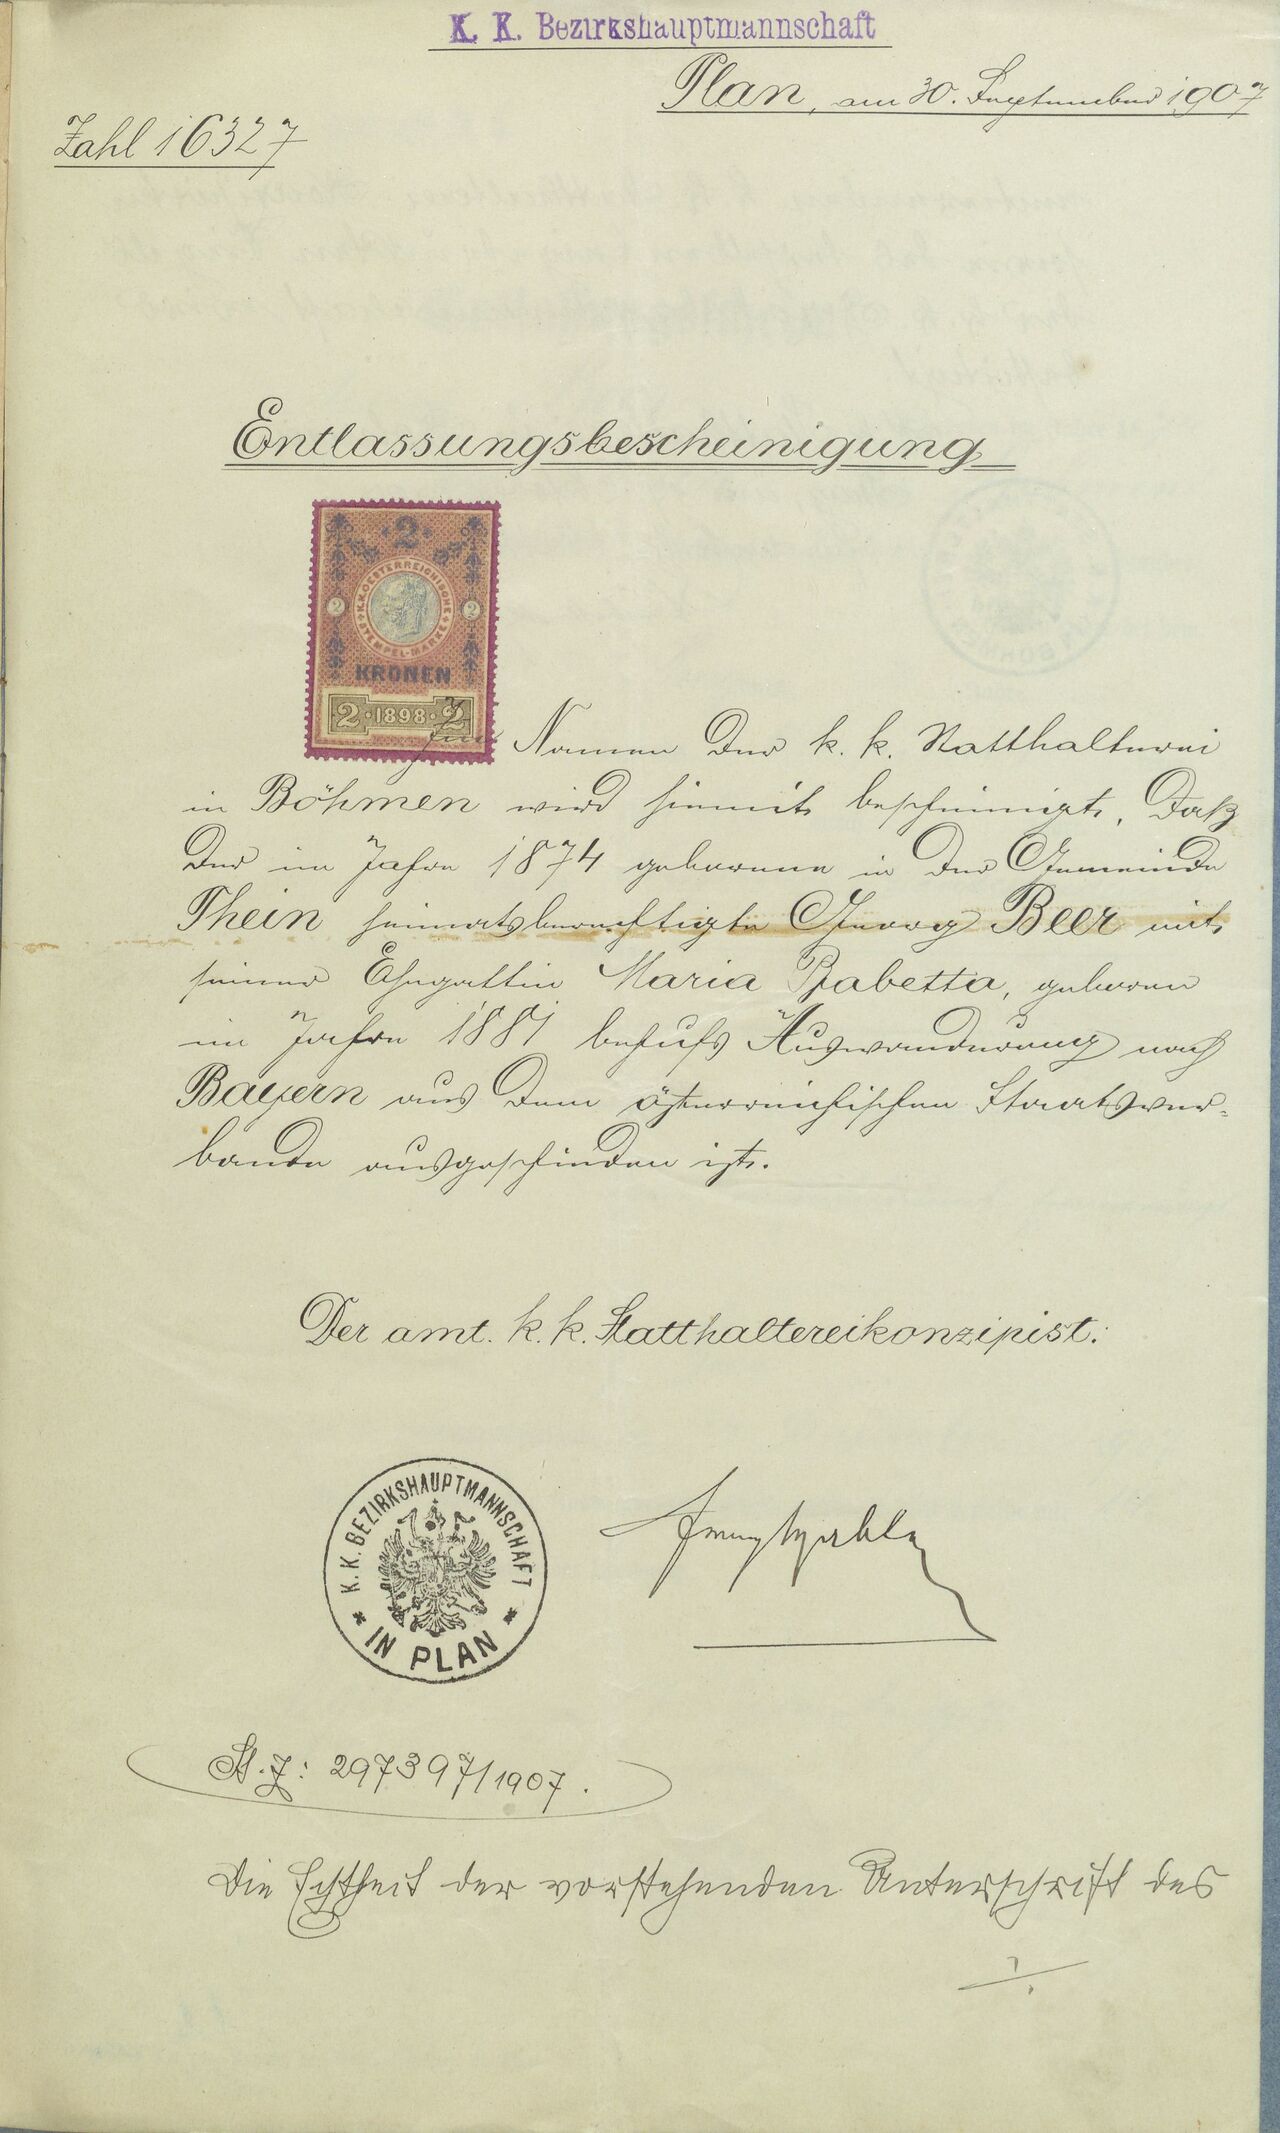 K. K. Bezirkshauptmannschaft
Plan, am 30. September 1907
Zahl 16327
Entlassungsbescheinigung
2
K.K. OESTERREICHISCHE STEMPEL-MARKE
2 2
KRONEN
2 · 1898 · 2
Im Namen der k. k. Statthalterei
in Böhmen wird hiemit bescheinigt, daß
der im Jahre 1874 geborene in der Gemeinde
Thein heimatsberechtigte Georg Beer mit
seiner Ehegattin Maria Babetta, geboren
im Jahre 1881 behufs Auswanderung nach
Bayern aus dem österreichischen Staatsver-
bande ausgeschieden ist.
Der amt. k. k. Statthaltereikonzipist:
K. K. BEZIRKSHAUPTMANNSCHAFT
* IN PLAN *
St. Z: 297397/1907.
Die Echtheit der vorstehenden Unterschrift des
./.